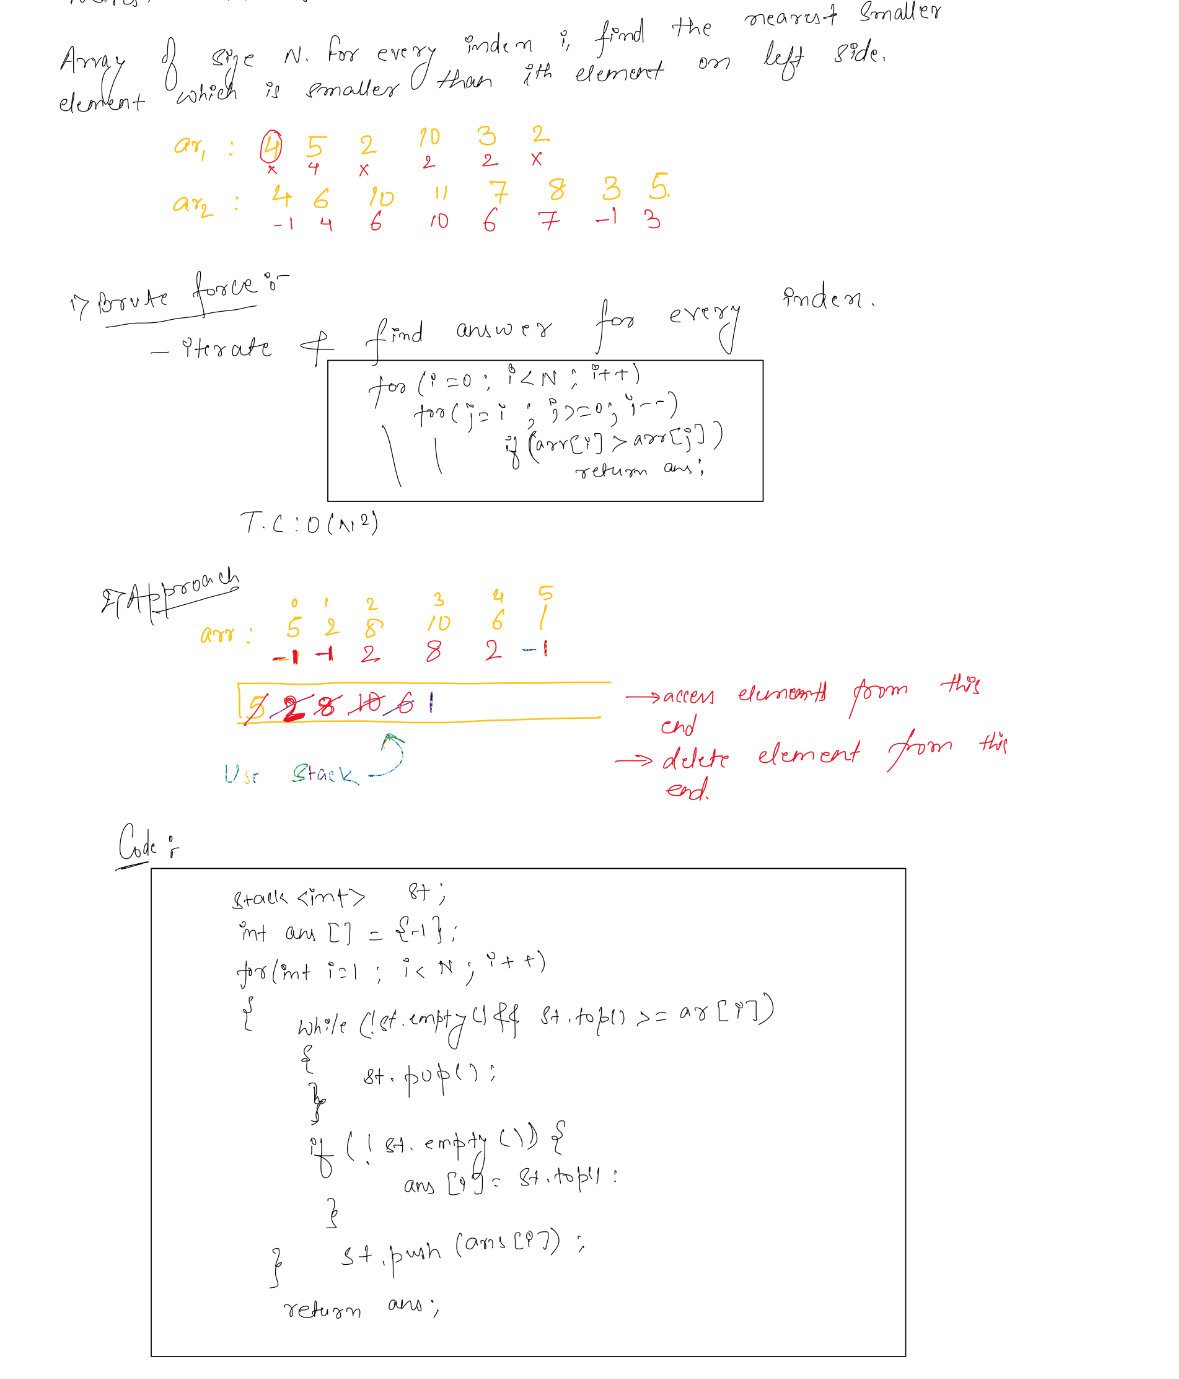 Array of size N. for every index i, find the nearest smaller
element which is smaller than ith element on left side.
ar1 : 4 5 2 10 3 2
x 4 x 2 2 x
ar2 : 4 6 10 11 7 8 3 5
-1 4 6 10 6 7 -1 3
1> Brute force :-
- iterate & find answer for every index.
for (i=0 ; i<N ; i++)
for(j=i ; j>=0; j--)
if (arr[i] > arr[j])
return ans;
T.C : O(N^2)
2> Approach
0 1 2 3 4 5
arr : 5 2 8 10 6 1
-1 -1 2 8 2 -1
5 2 8 10 6 1
→ access elements from this
end
→ delete element from this
end.
Use stack
Code :
stack <int> st;
int ans [] = {-1};
for(int i=1 ; i<N ; i++)
{
while (!st.empty() && st.top() >= ar[i])
{
st.pop();
}
if (! st.empty()) {
ans [i] = st.top() :
}
st.push (ans[i]) ;
}
return ans ;